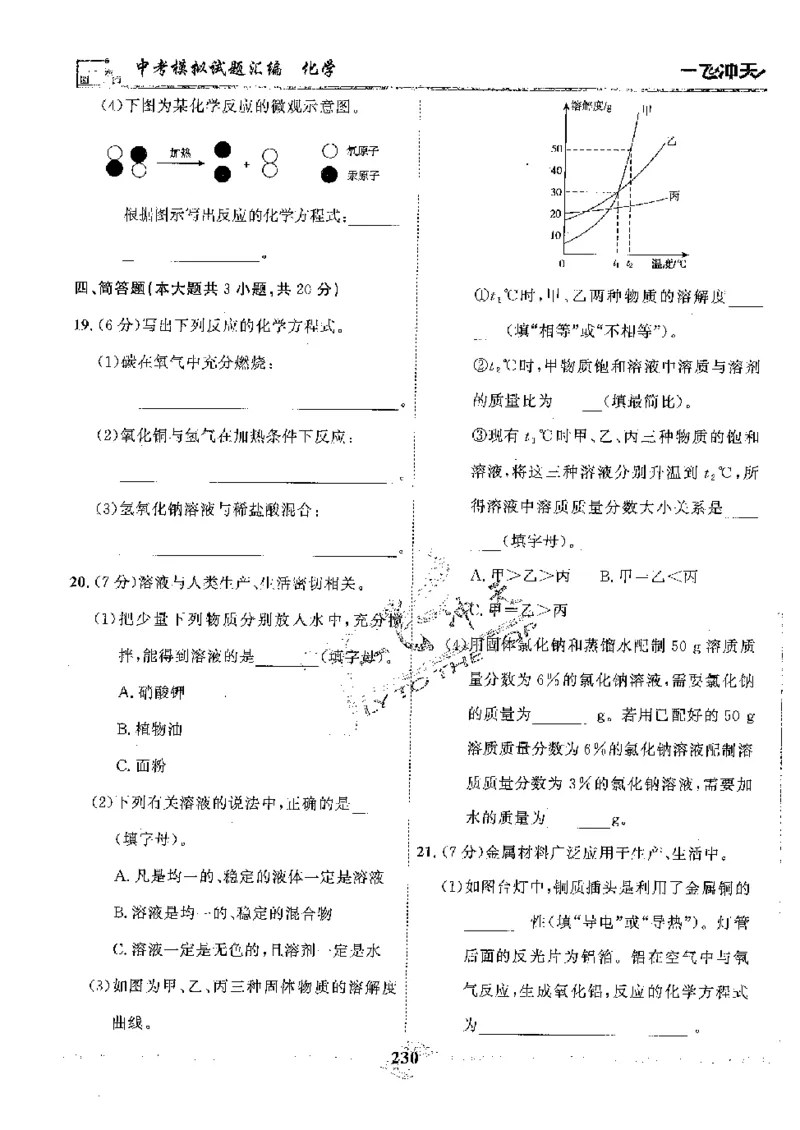 中考模拟试题汇编 化学
一飞冲天
(4)下图为某化学反应的微观示意图。
加热
+
氧原子
汞原子
根据图示写出反应的化学方程式:______
______。
四、简答题(本大题共3小题,共20分)
19.(6分)写出下列反应的化学方程式。
(1)碳在氧气中充分燃烧:
______ ______。
(2)氧化铜与氢气在加热条件下反应:
______ ______。
(3)氢氧化钠溶液与稀盐酸混合:
______ ______。
20.(7分)溶液与人类生产、生活密切相关。
(1)把少量下列物质分别放入水中,充分搅
拌,能得到溶液的是______(填字母)。
A.硝酸钾
B.植物油
C.面粉
(2)下列有关溶液的说法中,正确的是__
(填字母)。
A.凡是均一的、稳定的液体一定是溶液
B.溶液是均一的、稳定的混合物
C.溶液一定是无色的,且溶剂一定是水
(3)如图为甲、乙、丙三种固体物质的溶解度
曲线。
溶解度/g
甲
乙
丙
50
40
30
20
10
0
t₁ t₂ 温度/℃
①t₁℃时,甲、乙两种物质的溶解度____
__(填“相等”或“不相等”)。
②t₂℃时,甲物质饱和溶液中溶质与溶剂
的质量比为____(填最简比)。
③现有t₁℃时甲、乙、丙三种物质的饱和
溶液,将这三种溶液分别升温到t₂℃,所
得溶液中溶质质量分数大小关系是____
____(填字母)。
A.甲>乙>丙 B.甲=乙<丙
C.甲=乙>丙
(4)用固体氯化钠和蒸馏水配制50 g溶质质
量分数为6%的氯化钠溶液,需要氯化钠
的质量为______g。若用已配好的50 g
溶质质量分数为6%的氯化钠溶液配制溶
质质量分数为3%的氯化钠溶液,需要加
水的质量为____g。
21.(7分)金属材料广泛应用于生产、生活中。
(1)如图台灯中,铜质插头是利用了金属铜的
______性(填“导电”或“导热”)。灯管
后面的反光片为铝箔。铝在空气中与氧
气反应,生成氧化铝,反应的化学方程式
为______ ______。
冲天
FLY TO THE TOP
230